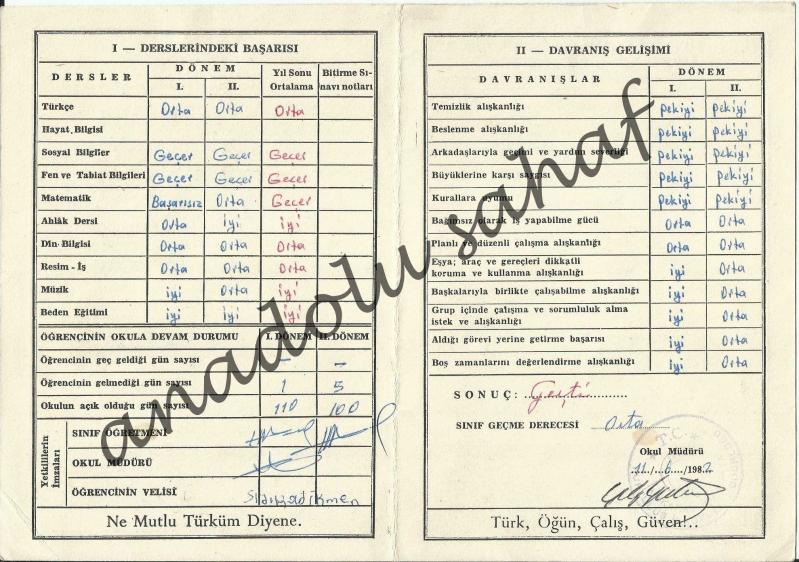 I — DERSLERİNDEKİ BAŞARISI
DERSLER DÖNEM Yıl Sonu Ortalama Bitirme Sınavı notları
I. II.
Türkçe Orta Orta Orta
Hayat Bilgisi
Sosyal Bilgiler Geçer Geçer Geçer
Fen ve Tabiat Bilgileri Geçer Geçer Geçer
Matematik Başarısız Orta Geçer
Ahlâk Dersi Orta iyi iyi
Din Bilgisi Orta Orta Orta
Resim - İş Orta Orta Orta
Müzik iyi Orta iyi
Beden Eğitimi iyi iyi iyi
ÖĞRENCİNİN OKULA DEVAM DURUMU I. DÖNEM II. DÖNEM
Öğrencinin geç geldiği gün sayısı — —
Öğrencinin gelmediği gün sayısı 1 5
Okulun açık olduğu gün sayısı 110 100
Yetkililerin İmzaları
SINIF ÖĞRETMENİ
OKUL MÜDÜRÜ
ÖĞRENCİNİN VELİSİ
Ne Mutlu Türküm Diyene.
II — DAVRANIŞ GELİŞİMİ
DAVRANIŞLAR DÖNEM
I. II.
Temizlik alışkanlığı pekiyi pekiyi
Beslenme alışkanlığı pekiyi pekiyi
Arkadaşlarıyla geçimi ve yardım severliği pekiyi pekiyi
Büyüklerine karşı saygısı pekiyi pekiyi
Kurallara uyumu pekiyi pekiyi
Bağımsız olarak iş yapabilme gücü Orta Orta
Planlı ve düzenli çalışma alışkanlığı Orta Orta
Eşya; araç ve gereçleri dikkatli
koruma ve kullanma alışkanlığı iyi Orta
Başkalarıyla birlikte çalışabilme alışkanlığı iyi Orta
Grup içinde çalışma ve sorumluluk alma
istek ve alışkanlığı iyi Orta
Aldığı görevi yerine getirme başarısı iyi Orta
Boş zamanlarını değerlendirme alışkanlığı iyi Orta
SONUÇ: Geçti
SINIF GEÇME DERECESİ Orta
T.C.
Okul Müdürü
11/6/1982
Türk, Öğün, Çalış, Güven!..
anadolu sahaf